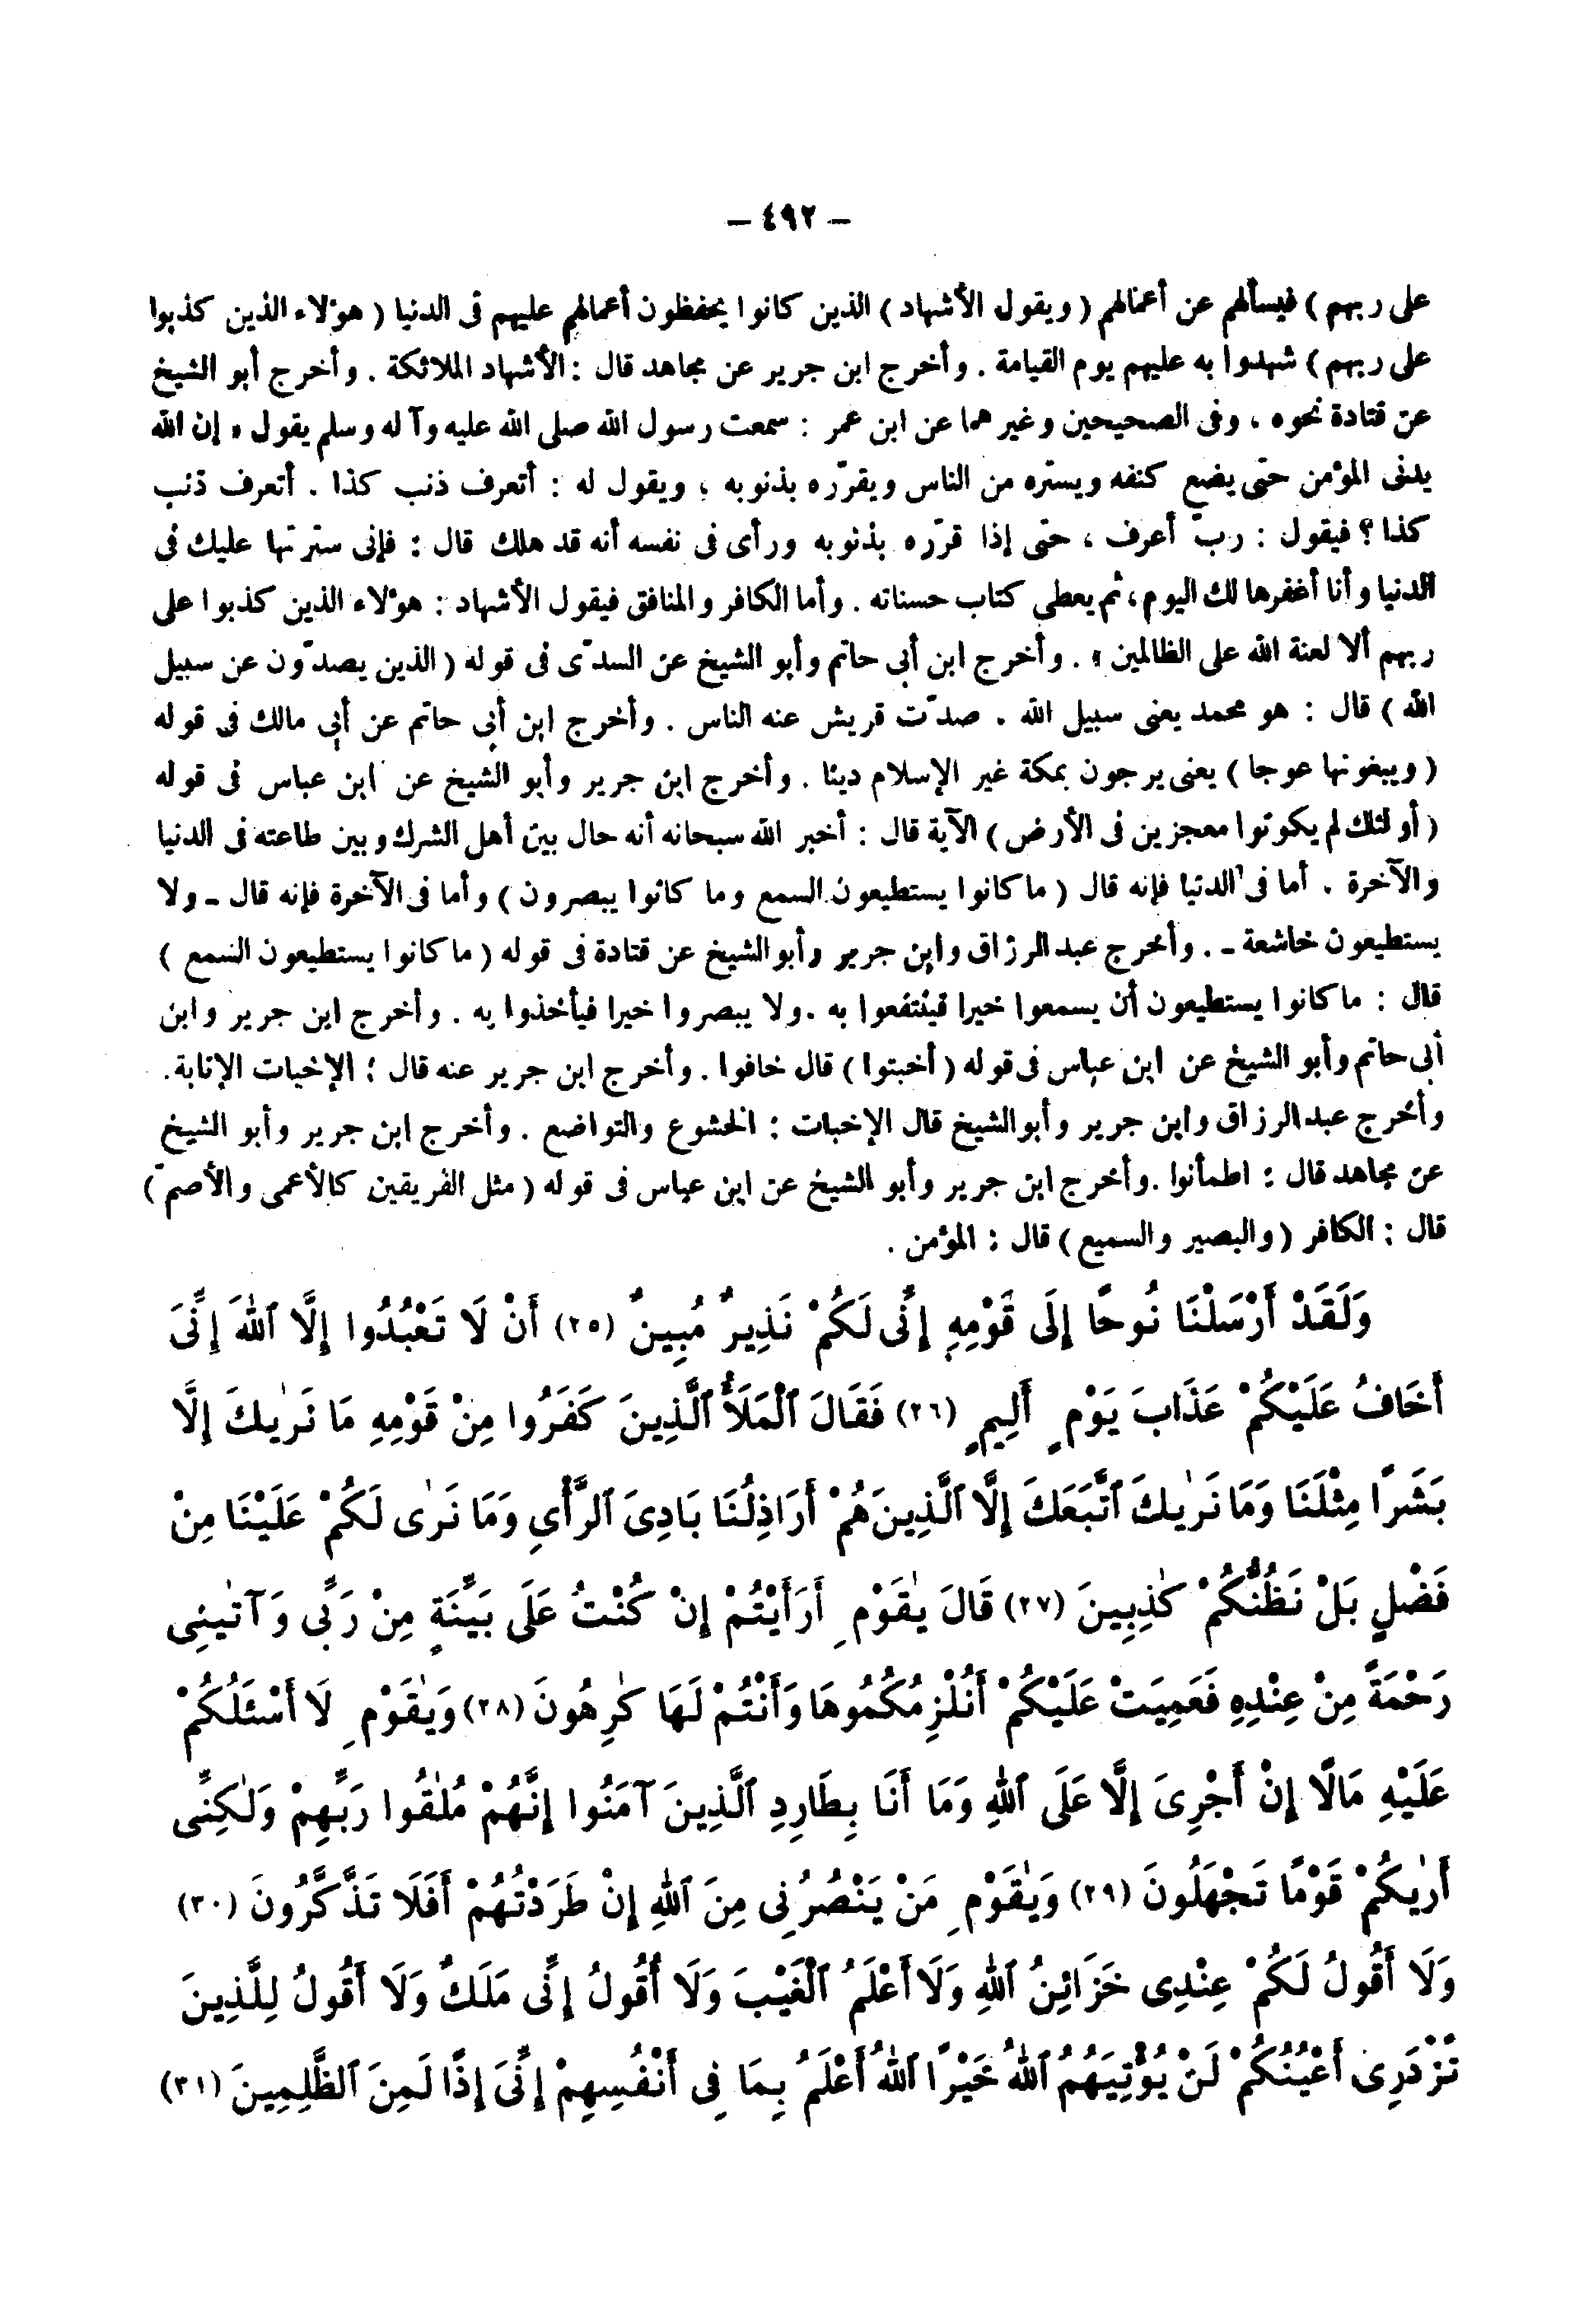 – ٤٩٢ –
على ربهم ) فيسألهم عن أعمالهم ( ويقول الأشهاد ) الذين كانوا يحفظون أعمالهم عليهم فى الدنيا ( هؤلاء الذين كذبوا
على ربهم ) شهدوا به عليهم يوم القيامة . وأخرج ابن جرير عن مجاهد قال : الأشهاد الملائكة . وأخرج أبو الشيخ
عن قتادة نحوه ، وفى الصحيحين وغيرهما عن ابن عمر : سمعت رسول الله صلى الله عليه وآله وسلم يقول « إن الله
يدنى المؤمن حتى يضع كنفه ويستره من الناس ويقرّره بذنوبه ، ويقول له : أتعرف ذنب كذا . أتعرف ذنب
كذا ؟ فيقول : ربّ أعرف ، حتى إذا قرّره بذنوبه ورأى فى نفسه أنه قد هلك قال : فإنى سترتها عليك فى
الدنيا وأنا أغفرها لك اليوم، ثم يعطى كتاب حسناته . وأما الكافر والمنافق فيقول الأشهاد : هؤلاء الذين كذبوا على
ربهم ألا لعنة الله على الظالمين » . وأخرج ابن أبى حاتم وأبو الشيخ عن السدّى فى قوله ( الذين يصدّون عن سبيل
الله ) قال : هو محمد يعنى سبيل الله . صدّت قريش عنه الناس . وأخرج ابن أبى حاتم عن أبى مالك فى قوله
( ويبغونها عوجا ) يعنى يرجون بمكة غير الإسلام دينا . وأخرج ابن جرير وأبو الشيخ عن ابن عباس فى قوله
( أولئك لم يكونوا معجزين فى الأرض ) الآية قال : أخبر الله سبحانه أنه حال بين أهل الشرك وبين طاعته فى الدنيا
والآخرة . أما فى الدنيا فإنه قال ( ما كانوا يستطيعون السمع وما كانوا يبصرون ) وأما فى الآخرة فإنه قال - ولا
يستطيعون خاشعة - . وأخرج عبد الرزاق وابن جرير وأبو الشيخ عن قتادة فى قوله ( ما كانوا يستطيعون السمع )
قال : ما كانوا يستطيعون أن يسمعوا خيرا فينتفعوا به . ولا يبصروا خيرا فيأخذوا به . وأخرج ابن جرير وابن
أبى حاتم وأبو الشيخ عن ابن عباس فى قوله ( أخبتوا ) قال خافوا . وأخرج ابن جرير عنه قال : الإخبات الإنابة .
وأخرج عبد الرزاق وابن جرير وأبو الشيخ قال الإخبات : الخشوع والتواضع . وأخرج ابن جرير وأبو الشيخ
عن مجاهد قال : اطمأنوا . وأخرج ابن جرير وأبو الشيخ عن ابن عباس فى قوله ( مثل الفريقين كالأعمى والأصمّ )
قال : الكافر ( والبصير والسميع ) قال : المؤمن .
وَلَقَدْ أَرْسَلْنَا نُوحًا إِلَى قَوْمِهِ إِنِّى لَكُمْ نَذِيرٌ مُبِينٌ (٢٥) أَنْ لَا تَعْبُدُوا إِلَّا ٱللّٰهَ إِنِّىَ
أَخَافُ عَلَيْكُمْ عَذَابَ يَوْمٍ أَلِيمٍ (٢٦) فَقَالَ ٱلْمَلَأُ ٱلَّذِينَ كَفَرُوا مِنْ قَوْمِهِ مَا نَرٰيكَ إِلَّا
بَشَرًا مِثْلَنَا وَمَا نَرٰيكَ ٱتَّبَعَكَ إِلَّا ٱلَّذِينَ هُمْ أَرَاذِلُنَا بَادِىَ ٱلرَّأْىِ وَمَا نَرٰى لَكُمْ عَلَيْنَا مِنْ
فَضْلٍ بَلْ نَظُنُّكُمْ كٰذِبِينَ (٢٧) قَالَ يٰقَوْمِ أَرَأَيْتُمْ إِنْ كُنْتُ عَلَى بَيِّنَةٍ مِنْ رَبِّى وَآتٰينِى
رَحْمَةً مِنْ عِنْدِهِ فَعَمِيَتْ عَلَيْكُمْ أَنُلْزِمُكُمُوهَا وَأَنْتُمْ لَهَا كٰرِهُونَ (٢٨) وَيٰقَوْمِ لَا أَسْئَلُكُمْ
عَلَيْهِ مَالًا إِنْ أَجْرِىَ إِلَّا عَلَى ٱللّٰهِ وَمَا أَنَا بِطَارِدِ ٱلَّذِينَ آمَنُوا إِنَّهُمْ مُلٰقُوا رَبِّهِمْ وَلٰكِنِّى
أَرٰيكُمْ قَوْمًا تَجْهَلُونَ (٢٩) وَيٰقَوْمِ مَنْ يَنْصُرُنِى مِنَ ٱللّٰهِ إِنْ طَرَدْتُهُمْ أَفَلَا تَذَّكَّرُونَ (٣٠)
وَلَا أَقُولُ لَكُمْ عِنْدِى خَزَائِنُ ٱللّٰهِ وَلَا أَعْلَمُ ٱلْغَيْبَ وَلَا أَقُولُ إِنِّى مَلَكٌ وَلَا أَقُولُ لِلَّذِينَ
تَزْدَرِى أَعْيُنُكُمْ لَنْ يُؤْتِيَهُمُ ٱللّٰهُ خَيْرًا ٱللّٰهُ أَعْلَمُ بِمَا فِى أَنْفُسِهِمْ إِنِّىَ إِذًا لَمِنَ ٱلظَّلِمِينَ (٣١)